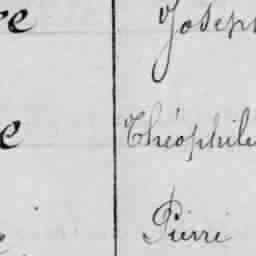 Joseph
Théophile
Pierre